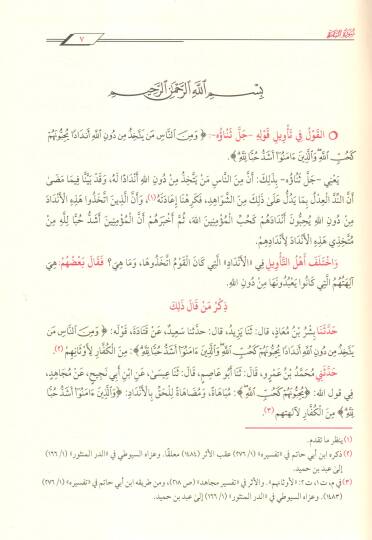 سُورَةُ البَقَرَة
٧
بِسْمِ ٱللَّهِ ٱلرَّحْمَٰنِ ٱلرَّحِيمِ
القَوْلُ فِي تَأْوِيلِ قَوْلِهِ -جَلَّ ثَنَاؤُهُ-: ﴿ وَمِنَ ٱلنَّاسِ مَن يَتَّخِذُ مِن دُونِ ٱللَّهِ أَندَادًا يُحِبُّونَهُمْ
كَحُبِّ ٱللَّهِ وَٱلَّذِينَ ءَامَنُوٓا۟ أَشَدُّ حُبًّا لِّلَّهِ﴾.
يَعْنِي -جَلَّ ثَنَاؤُهُ- بِذَلِكَ: أَنَّ مِنَ النَّاسِ مَنْ يَتَّخِذُ مِنْ دُونِ اللهِ أَنْدَادًا لَهُ، وَقَدْ بَيَّنَّا فِيمَا مَضَى
أَنَّ النِّدَّ العِدْلُ بِمَا يَدُلُّ عَلَى ذَلِكَ مِنَ الشَّوَاهِدِ، فَكَرِهْنَا إِعَادَتَهُ(١)، وَأَنَّ الَّذِينَ اتَّخَذُوا هَذِهِ الْأَنْدَادَ
مِنْ دُونِ اللهِ يُحِبُّونَ أَنْدَادَهُمْ كَحُبِّ المُؤْمِنِينَ اللهَ، ثُمَّ أَخْبَرَهُمْ أَنَّ المُؤْمِنِينَ أَشَدُّ حُبًّا لِلَّهِ مِنْ
مُتَّخِذِي هَذِهِ الْأَنْدَادِ لِأَنْدَادِهِمْ.
وَاخْتَلَفَ أَهْلُ التَّأْوِيلِ فِي «الأَنْدَادِ» الَّتِي كَانَ القَوْمُ اتَّخَذُوهَا، وَمَا هِيَ؟ فَقَالَ بَعْضُهُمْ: هِيَ
آلِهَتُهُمُ الَّتِي كَانُوا يَعْبُدُونَهَا مِنْ دُونِ اللهِ.
ذِكْرُ مَنْ قَالَ ذَلِكَ
حَدَّثَنَا بِشْرُ بْنُ مُعَاذٍ، قال: ثَنَا يَزِيدُ، قال: حدَّثنا سَعِيدٌ، عَنْ قَتَادَةَ، قَوْلَهُ: ﴿ وَمِنَ ٱلنَّاسِ مَن
يَتَّخِذُ مِن دُونِ ٱللَّهِ أَندَادًا يُحِبُّونَهُمْ كَحُبِّ ٱللَّهِ وَٱلَّذِينَ ءَامَنُوٓا۟ أَشَدُّ حُبًّا لِّلَّهِ﴾: مِنَ الْكُفَّارِ لِأَوْثَانِهِمْ (٢).
حَدَّثَنِي مُحَمَّدُ بْنُ عَمْرٍو، قَالَ: ثَنَا أَبُو عَاصِمٍ، قَالَ: ثَنَا عِيسَى، عَنِ ابْنِ أَبِي نَجِيحٍ، عَنْ مُجَاهِدٍ،
فِي قول الله: ﴿يُحِبُّونَهُمْ كَحُبِّ ٱللَّهِ﴾: مُبَاهَاةً، وَمُضَاهَاةً لِلْحَقِّ بِالْأَنْدَادِ: ﴿وَٱلَّذِينَ ءَامَنُوٓا۟ أَشَدُّ حُبًّا
لِّلَّهِ﴾ مِنَ الْكُفَّارِ لآلهتهم (٣).
(١) ينظر ما تقدم.
(٢) ذكره ابن أبي حاتم في «تفسيره» (١/ ٢٧٦) عقب الأثر (١٤٨٤) معلقًا. وعزاه السيوطي في «الدر المنثور» (١/ ١٦٦)
إلى عبد بن حميد.
(٣) في م، ت١، ت٢: «لأوثانهم». والأثر في «تفسير مجاهد» (ص ٢١٨)، ومن طريقه ابن أبي حاتم في «تفسيره» (١/ ٢٧٦)
(١٤٨٣). وعزاه السيوطي في «الدر المنثور» (١/ ١٦٦) إلى عبد بن حميد.